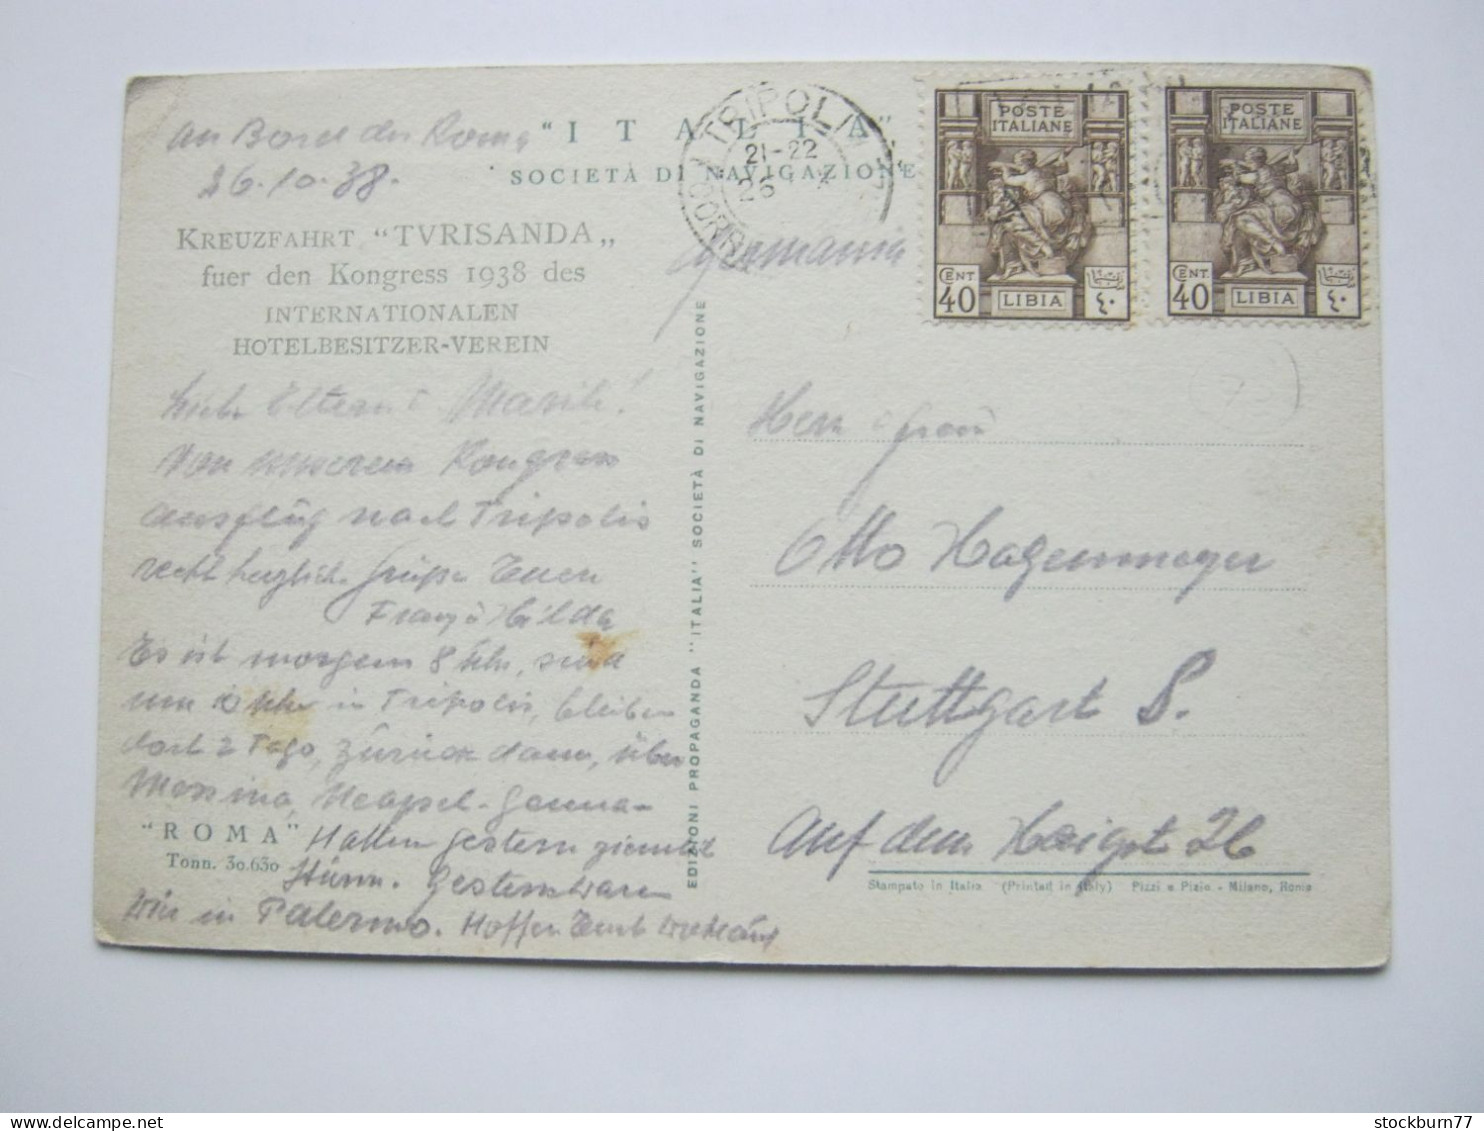 an Bord der Roma
26.10.38.
"ITALIA"
SOCIETÀ DI NAVIGAZIONE
KREUZFAHRT "TVRISANDA"
fuer den Kongress 1938 des
INTERNATIONALEN
HOTELBESITZER-VEREIN
Liebe Eltern
Von unserem Kongress
ausflug nach Tripolis
recht herzliche Grüße Euer
Franz u Hilda
Es ist morgens 8 Uhr, sind
um Uhr in Tripolis, bleiben
dort 2 Tage, zurück dann, über
Messina, Neapel-Genua-
Hatten gestern ziemlich
Sturm. Gestern waren
wir in Palermo. Hoffen Euch wohlauf
"ROMA"
Tonn. 30.630
EDIZIONI PROPAGANDA "ITALIA" SOCIETÀ DI NAVIGAZIONE
TRIPOLI
21-22
26 X
Germania
POSTE
ITALIANE
CENT
40
LIBIA
٤٠
POSTE
ITALIANE
CENT
40
LIBIA
٤٠
Herr Frau
Otto Hagenmeyer
Stuttgart S.
Auf dem Haigst 26
Stampato in Italia (Printed in Italy) Pizzi e Pizio - Milano, Roma
stockburn77